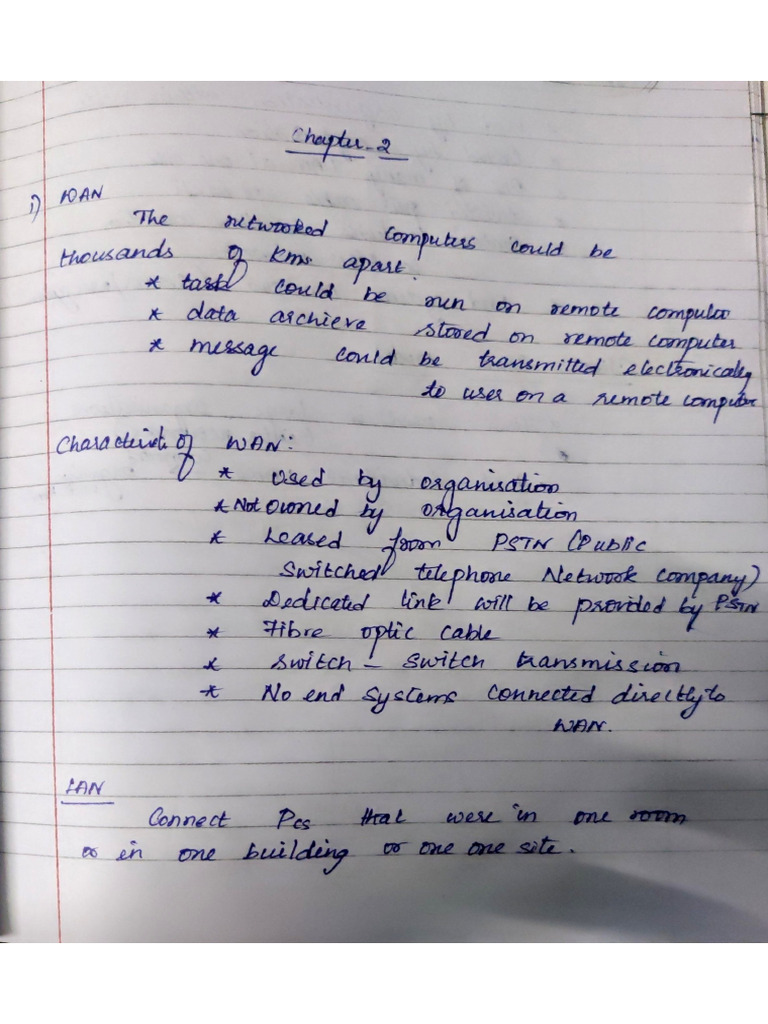 Chapter-2
i) WAN
The networked computers could be
thousands of Kms apart.
* task could be run on remote computer
* data archieve stored on remote computer
* message could be transmitted electronically
to user on a remote computer
Characteristic of WAN:
* Used by organisation
* Not owned by organisation
* Leased from PSTN (Public
Switched telephone Network company)
* Dedicated link will be provided by PSTN
* Fibre optic cable
* Switch - Switch transmission
* No end systems connected directly to
WAN.
LAN
Connect Pcs that were in one room
or in one building or one one site.